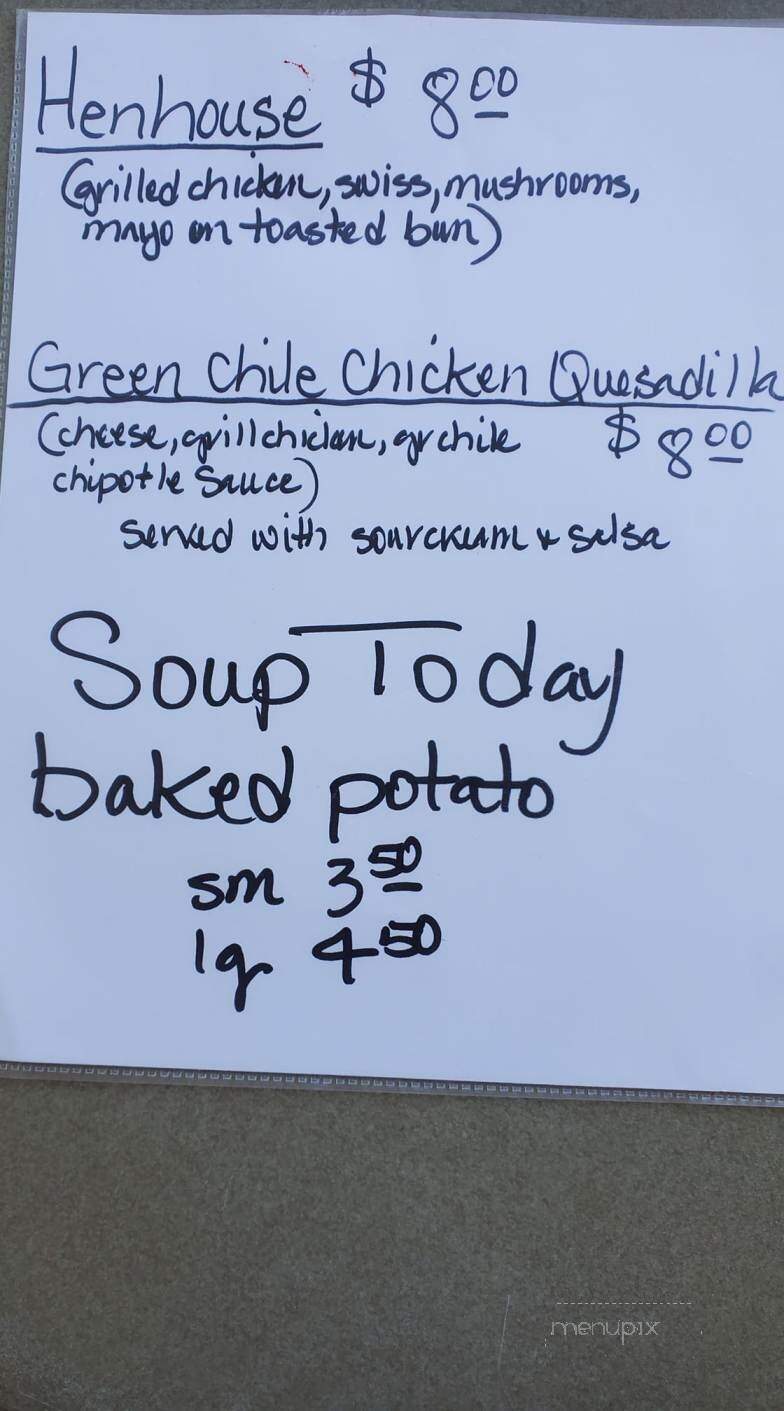 Henhouse $ 8.00
(grilled chicken, swiss, mushrooms,
mayo on toasted bun)
Green Chile Chicken Quesadilla
(cheese, grill chicken, gr chile $ 8.00
chipotle Sauce)
served with sourcream + salsa
Soup Today
baked potato
sm 3.50
lg 4.50
menupix